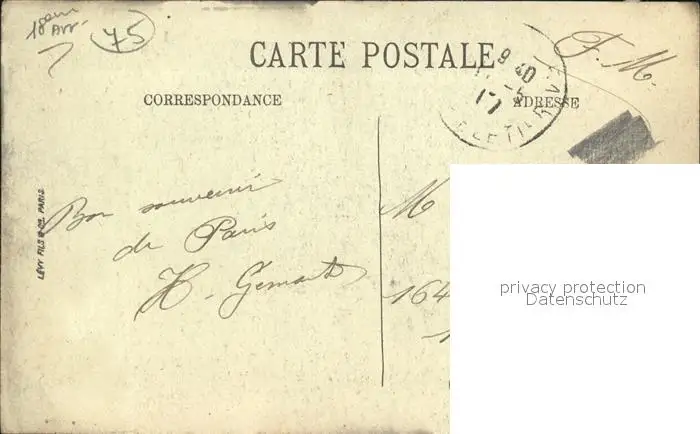 18eme
Arr.
75
CARTE POSTALE
F. M.
9 40
CORRESPONDANCE
ADRESSE
LÉVY FILS & Cie, PARIS
Bon souvenir
de Paris
H.
M
164
privacy protection
Datenschutz